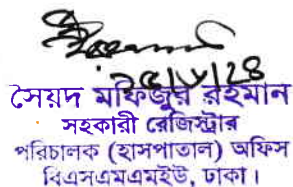 সৈয়দ মফিজুর রহমান
সহকারী রেজিস্ট্রার
পরিচালক (হাসপাতাল) অফিস
বিএসএমএমইউ, ঢাকা।